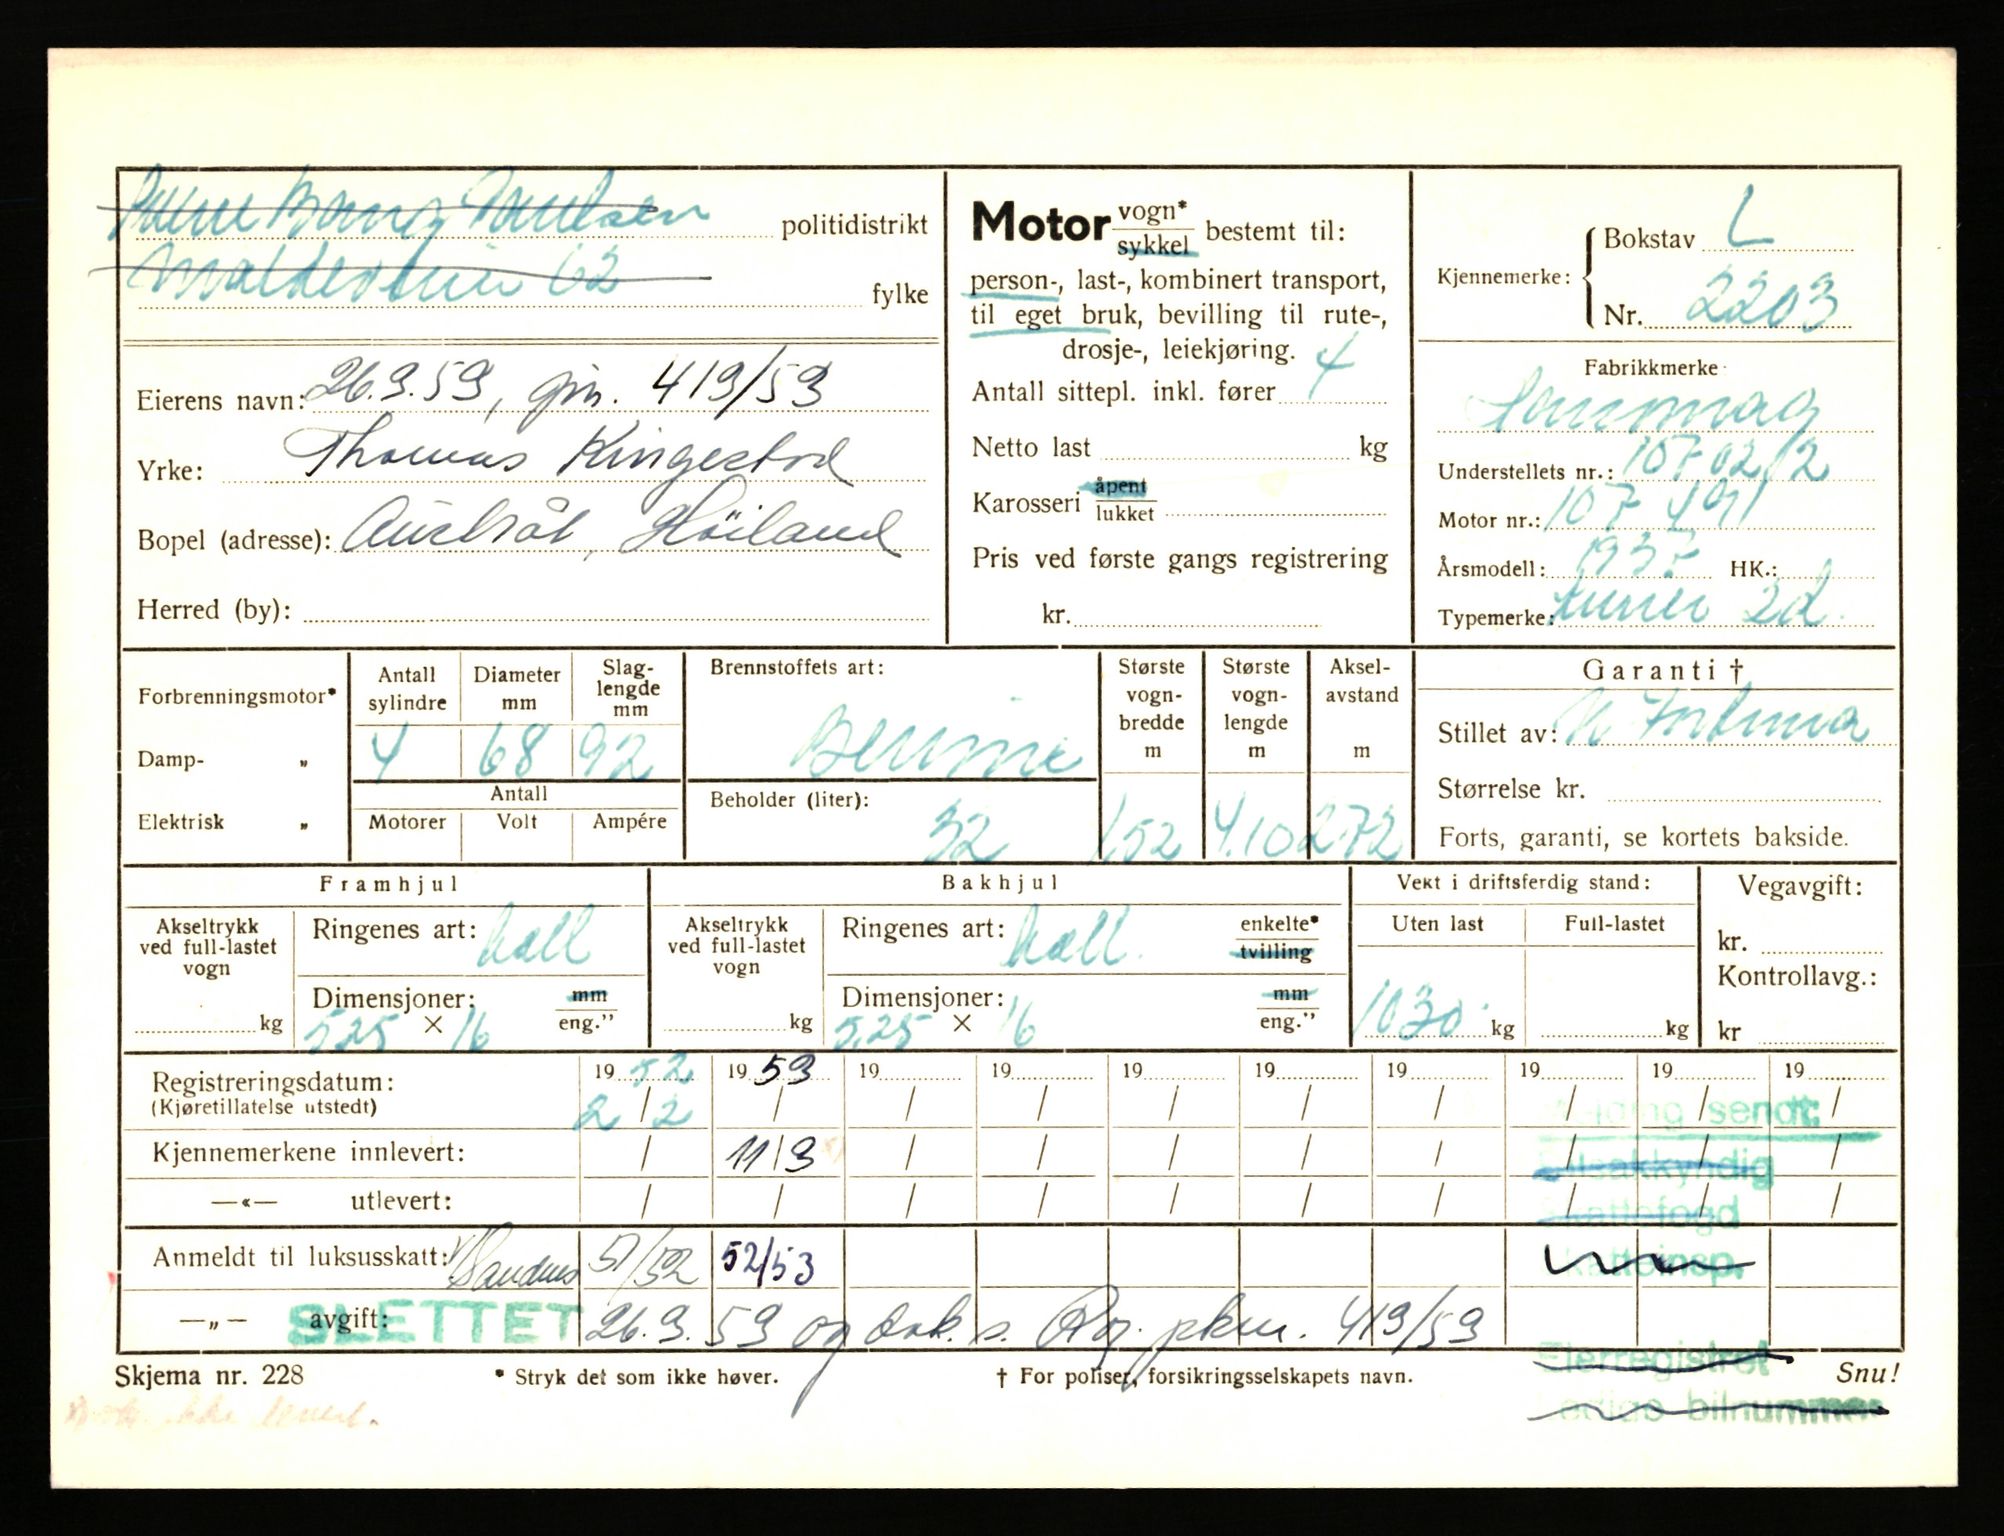 politidistrikt
fylke
Eierens navn: 26.9.53, gjn. 419/53
Yrke: Thomas Ringestod
Bopel (adresse): Austråt, Höiland
Herred (by):
Motor vogn* sykkel bestemt til:
person-, last-, kombinert transport,
til eget bruk, bevilling til rute-,
drosje-, leiekjøring.
Antall sittepl. inkl. fører 4
Netto last kg
Karosseri åpent lukket
Pris ved første gangs registrering
kr.
Kjennemerke: Bokstav L
Nr. 2203
Fabrikkmerke
Understellets nr.: 107 0212
Motor nr.: 107 491
Årsmodell: 1937 HK.:
Typemerke: 2d.
Forbrenningsmotor*
Damp- „
Elektrisk „
Antall sylindre
4
Diameter mm
68
Slag-lengde mm
92
Antall
Motorer Volt Ampére
Brennstoffets art:
Bensin
Beholder (liter):
32
Største vogn-bredde m
1,52
Største vogn-lengde m
4.10
Aksel-avstand m
272
Garanti †
Stillet av: N. Fortuna
Størrelse kr.
Forts, garanti, se kortets bakside.
Framhjul
Akseltrykk ved full-lastet vogn
kg
Ringenes art: hall
Dimensjoner: mm eng."
525 × 16
Bakhjul
Akseltrykk ved full-lastet vogn
kg
Ringenes art: hall. enkelte* tvilling
Dimensjoner: mm eng."
5,25 × 16
Vekt i driftsferdig stand:
Uten last Full-lastet
1030 kg kg
Vegavgift:
kr.
Kontrollavg.:
kr
Registreringsdatum: 19 52 19 53 19 19 19 19 19 19 19 19
(Kjøretillatelse utstedt) 2 / 2 / / / / / / / / /
sendt:
Kjennemerkene innlevert: / 11/9 / / / / / / / /
Bilsakkyndig
—«— utlevert: / / / / / / / / / /
Skattefogd
Anmeldt til luksusskatt: 51/52 52/53
Skatteinsp.
—„— avgift: SLETTET 26.9.53 og dok. s. Rog. pkm. 419/53
Eierregistret
Skjema nr. 228 * Stryk det som ikke høver. † For poliser, forsikringsselskapets navn. Snu!
Ledige bilnummer